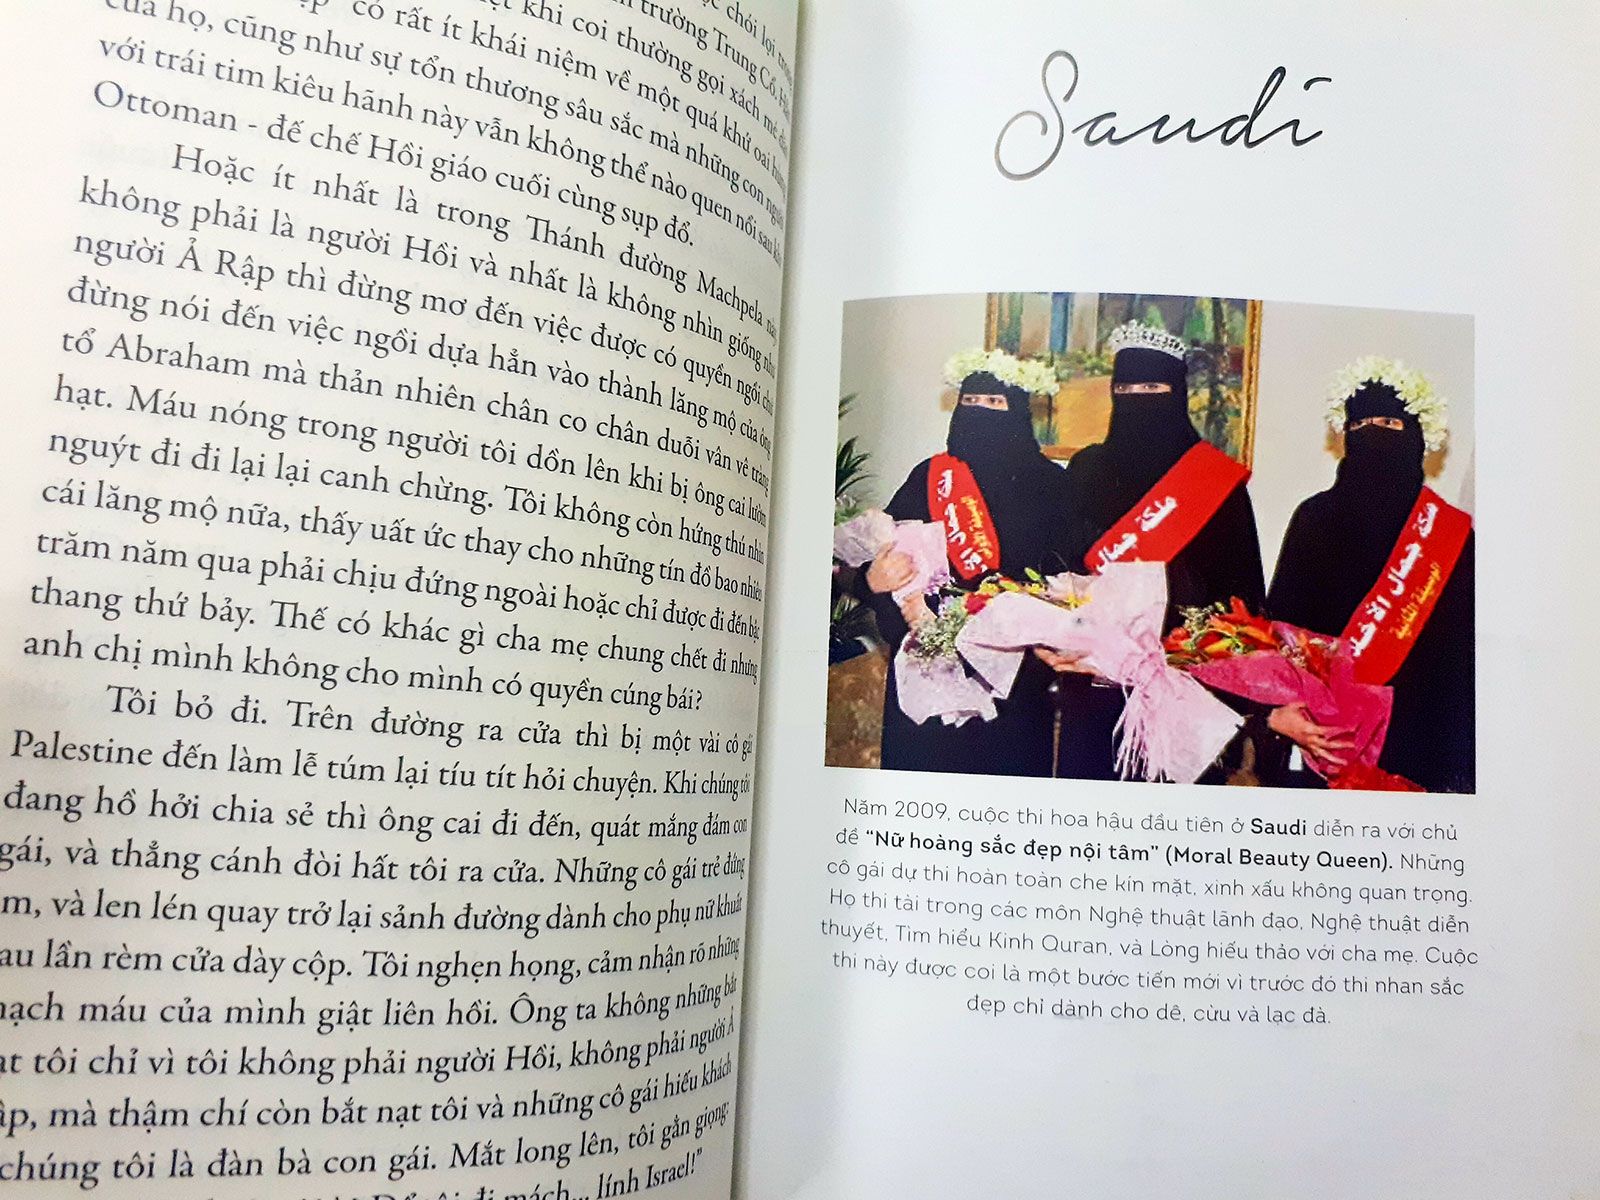 chói lọi trong
trường Trung Cổ. Hẳn
khi coi thường gọi xách mé dân
có rất ít khái niệm về một quá khứ oai hùng
của họ, cũng như sự tổn thương sâu sắc mà những con người
với trái tim kiêu hãnh này vẫn không thể nào quen nổi sau khi
Ottoman - đế chế Hồi giáo cuối cùng sụp đổ.
Hoặc ít nhất là trong Thánh đường Machpela này
không phải là người Hồi và nhất là không nhìn giống như
người Ả Rập thì đừng mơ đến việc được có quyền ngồi chứ
đừng nói đến việc ngồi dựa hẳn vào thành lăng mộ của ông
tổ Abraham mà thản nhiên chân co chân duỗi vân vê tràng
hạt. Máu nóng trong người tôi dồn lên khi bị ông cai lườm
nguýt đi đi lại lại canh chừng. Tôi không còn hứng thú nhìn
cái lăng mộ nữa, thấy uất ức thay cho những tín đồ bao nhiêu
trăm năm qua phải chịu đứng ngoài hoặc chỉ được đi đến bậc
thang thứ bảy. Thế có khác gì cha mẹ chung chết đi nhưng
anh chị mình không cho mình có quyền cúng bái?
Tôi bỏ đi. Trên đường ra cửa thì bị một vài cô gái
Palestine đến làm lễ túm lại tíu tít hỏi chuyện. Khi chúng tôi
đang hồ hởi chia sẻ thì ông cai đi đến, quát mắng đám con
gái, và thẳng cánh đòi hất tôi ra cửa. Những cô gái trẻ đứng
im, và len lén quay trở lại sảnh đường dành cho phụ nữ khuất
sau lần rèm cửa dày cộp. Tôi nghẹn họng, cảm nhận rõ những
mạch máu của mình giật liên hồi. Ông ta không những bắt
nạt tôi chỉ vì tôi không phải người Hồi, không phải người Ả
Rập, mà thậm chí còn bắt nạt tôi và những cô gái hiếu khách
chúng tôi là đàn bà con gái. Mắt long lên, tôi gằn giọng:
đi mách... lính Israel!"
Saudi
ملكة جمال
ملكة جمال الأخلاق
الوصيفة الثانية
Năm 2009, cuộc thi hoa hậu đầu tiên ở Saudi diễn ra với chủ
đề "Nữ hoàng sắc đẹp nội tâm" (Moral Beauty Queen). Những
cô gái dự thi hoàn toàn che kín mặt, xinh xấu không quan trọng.
Họ thi tài trong các môn Nghệ thuật lãnh đạo, Nghệ thuật diễn
thuyết, Tìm hiểu Kinh Quran, và Lòng hiếu thảo với cha mẹ. Cuộc
thi này được coi là một bước tiến mới vì trước đó thi nhan sắc
đẹp chỉ dành cho dê, cừu và lạc đà.